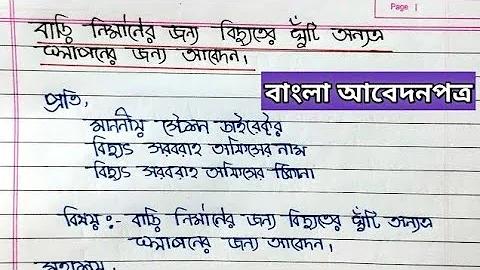 Page |
বাড়ি নির্মানের জন্য বিদ্যুতের খুঁটি অন্যত্র
স্থাপনের জন্য আবেদন।
বাংলা আবেদনপত্র
প্রতি,
মাননীয় স্টেশন ডাইরেক্টর
বিদ্যুৎ সরবরাহ অফিসের নাম
বিদ্যুৎ সরবরাহ অফিসের ঠিকানা
বিষয়ঃ- বাড়ি নির্মানের জন্য বিদ্যুতের খুঁটি অন্যত্র
স্থাপনের জন্য আবেদন।
মহাশয়,